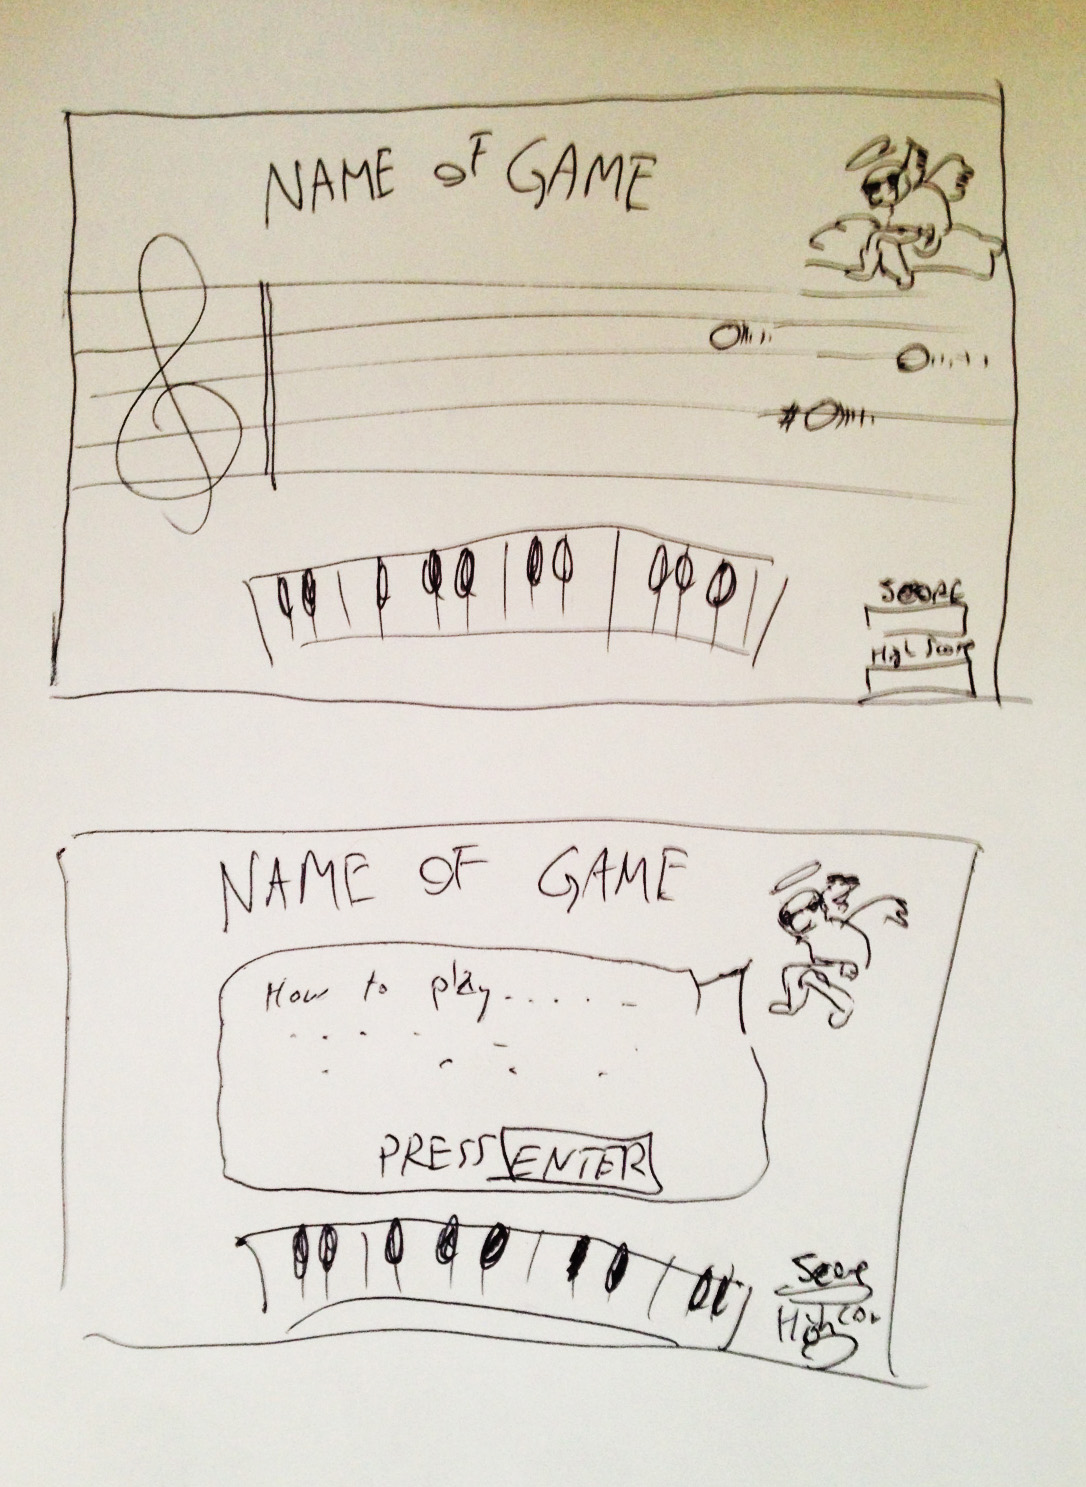 NAME OF GAME
#
SCORE
High Score
NAME OF GAME
How to play.....
PRESS ENTER
Score
High